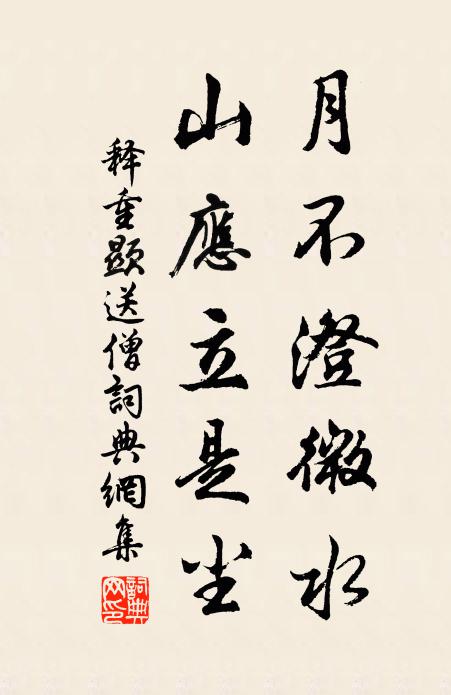 月不澄微水
山應立是尘
释重顯送僧詞典網集
詞典
网印